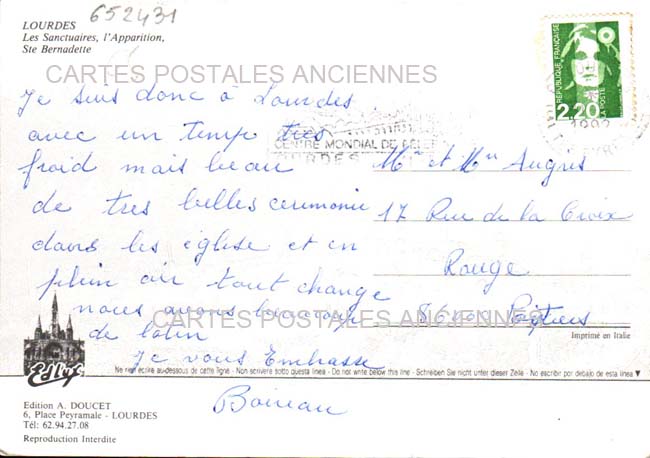 652431
LOURDES
Les Sanctuaires, l'Apparition,
Ste Bernadette
CARTES POSTALES ANCIENNES
REPUBLIQUE FRANÇAISE
2,20
LA POSTE
1992
CENTRE MONDIAL DE
LOURDES
Je suis donc à Lourdes
avec un temps tres
froid mais beau
de tres belles ceremonie
dans les église et en
plein air tout change
nous avons beaucoup
de latin
Je vous Embrasse
Boireau
Mr et Mm Augris
17 Rue de la Croix
Rouge
86400 Poitiers
CARTES POSTALES ANCIENNES
Imprimé en Italie
Edhyf
Ne rien écrire au-dessous de cette ligne - Non scrivere sotto questa linea - Do not write below this line - Schreiben Sie nicht unter dieser Zeile - No escribir por debajo de esta linea ▼
Edition A. DOUCET
6, Place Peyramale - LOURDES
Tél: 62.94.27.08
Reproduction Interdite